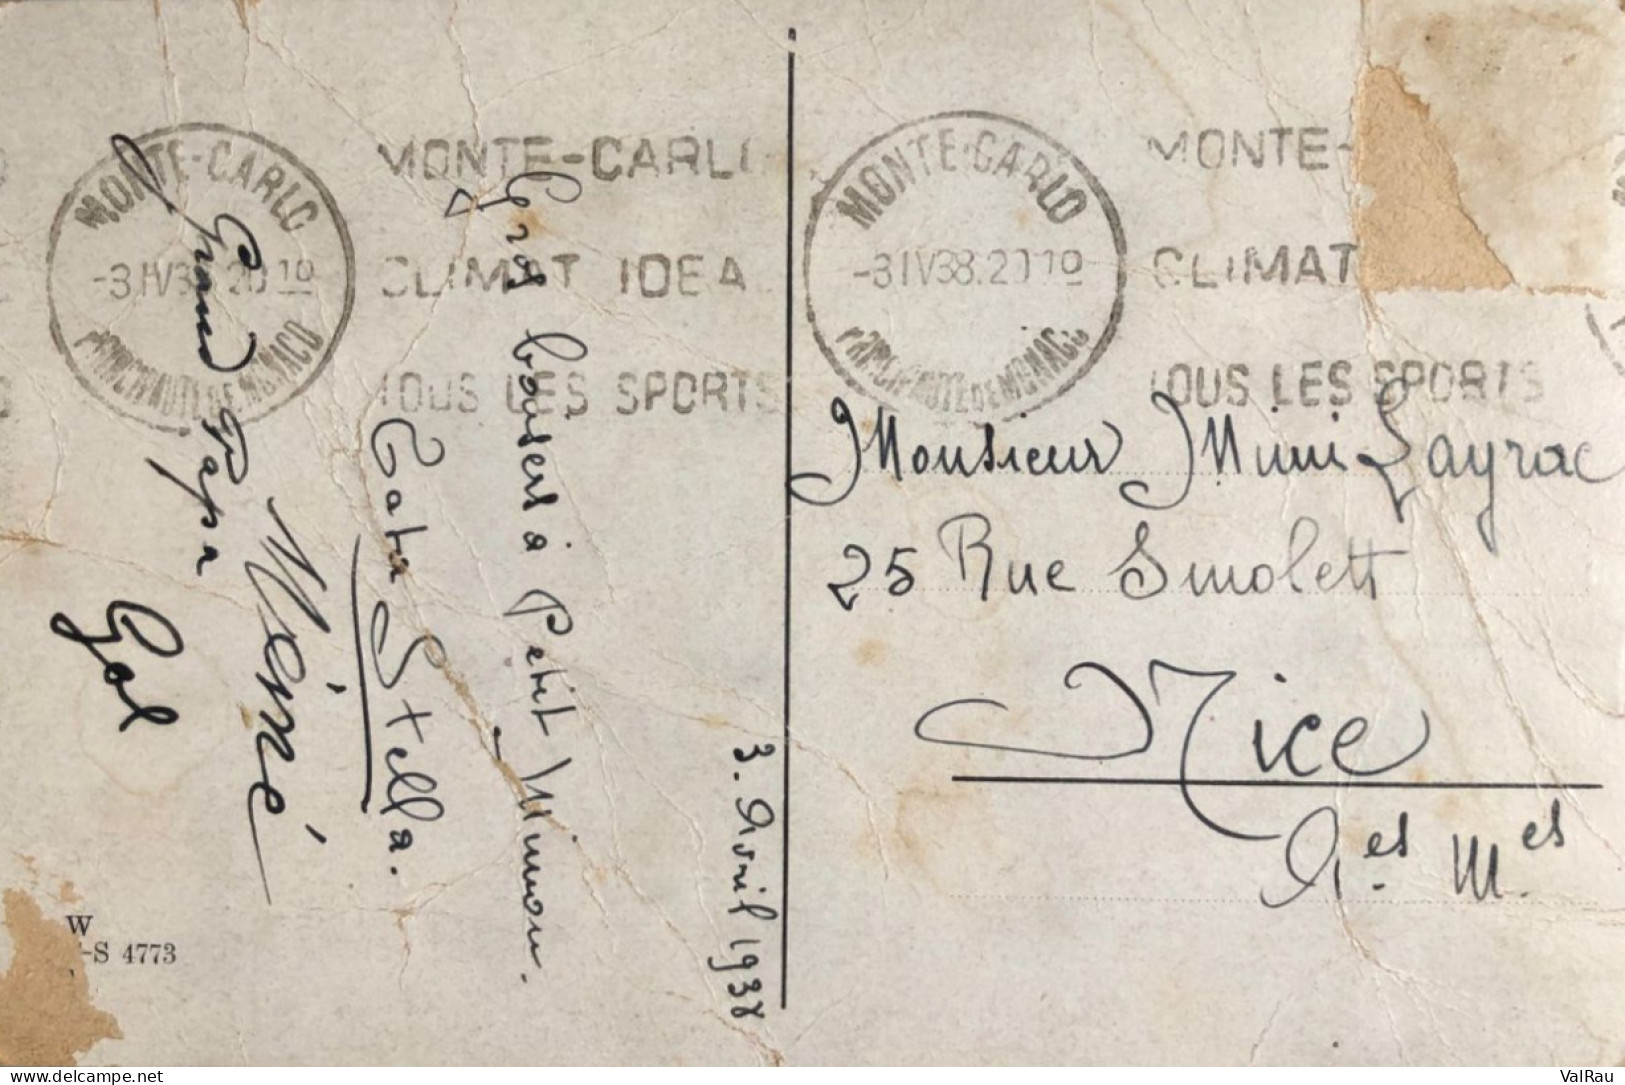 MONTE-CARLO
-3 IV 38.20 10
PRINCIPAUTE DE MONACO
MONTE-CARLO
CLIMAT IDEA
TOUS LES SPORTS
MONTE-CARLO
-3 IV 38.20 10
PRINCIPAUTE DE MONACO
MONTE-
CLIMAT
TOUS LES SPORTS
3. Avril 1938
Gros baisers à Petit Mimon.
Tata Stella.
Méné
Grand Papa
Gol
Monsieur Mimi Layrac
25 Rue Smolett
Nice
Aes Mes
W
-S 4773
ValRau